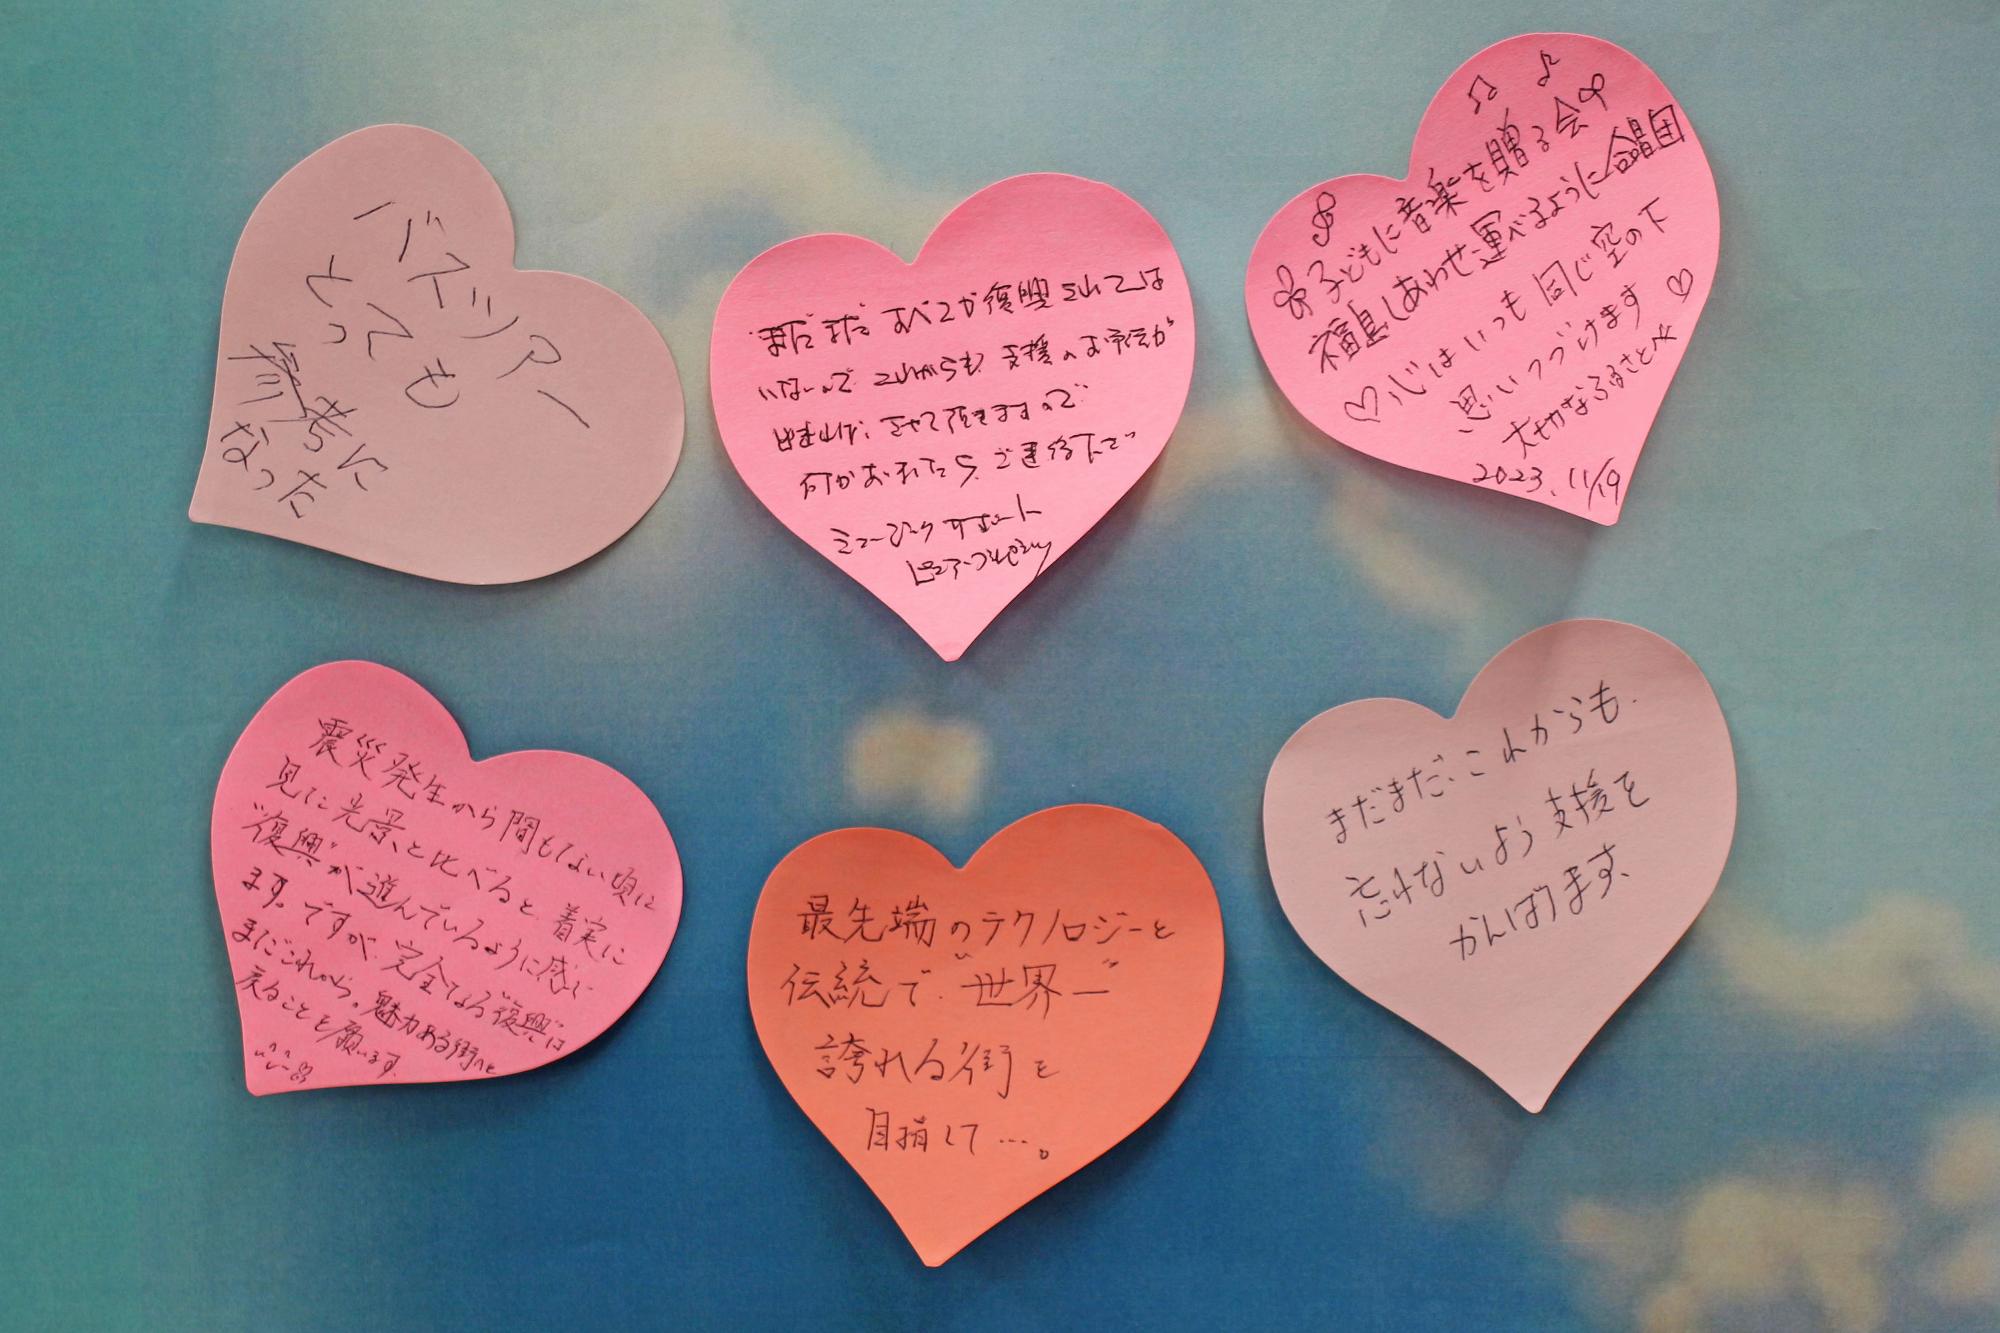 バスツアー
とっても
参考に
なった
まだまだ すべてが復興されては
いないので これからも 支援のお手伝が
出来れば、させて頂きますので
何かあれたら、ご連絡下で
ミュージックサポート
♫ ♪
子どもに音楽を贈る会
福島しあわせ運べるように合唱団
♡心はいつも同じ空の下
思いつづけます♡
大切なふるさと☆
2023.11/19
震災発生から間もない頃に
見た光景と比べると、着実に
"復興"が進んでいるように感じ
ます。ですが、完全なる"復興"は
まだこれから。魅力ある街へと
戻ることを願います。
最先端のテクノロジーと
伝統で "世界一"
誇れる街を
目指して…。
まだまだ、これからも、
忘れないよう支援を
がんばります、